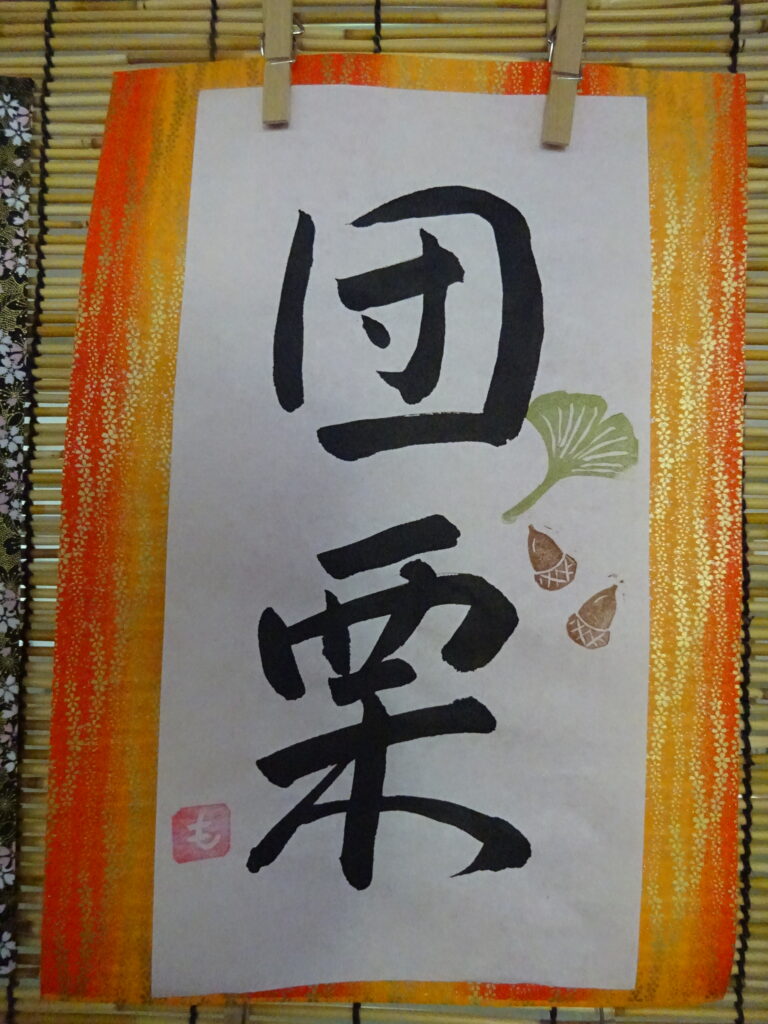 団栗
も